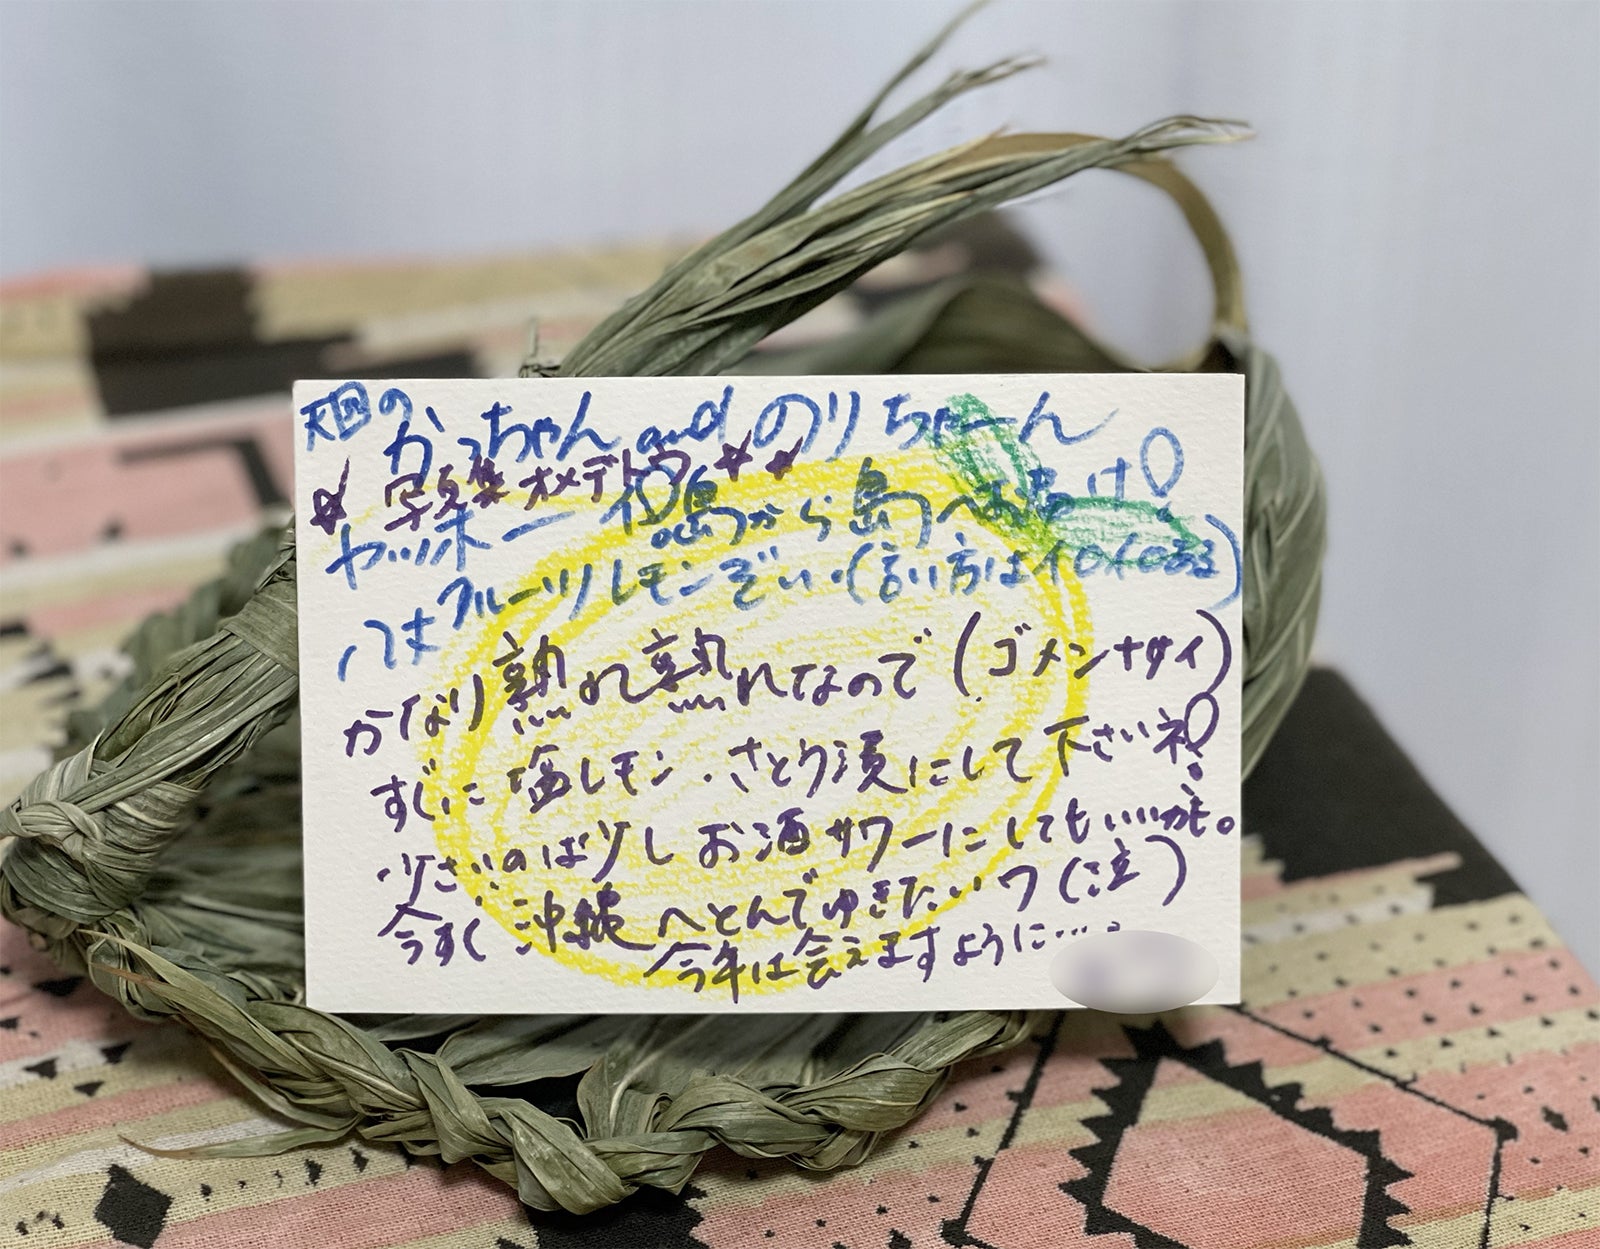 天国の
かっちゃん and のりちゃーん
☆ 写真集 オメデトウ ☆☆
ヤッホー 島から島へお届け!
八丈フルーツレモンぞい・(言い方はイロイロある)
かなり熟れ熟れなので (ゴメンナサイ)
すぐに 塩レモン・さとう漬にして下さいネ!
小さいのは少しお酒サワーにしてもいいかも。
今すぐ 沖縄へとんでゆきたいワ (泣)
今年は会えますように…。